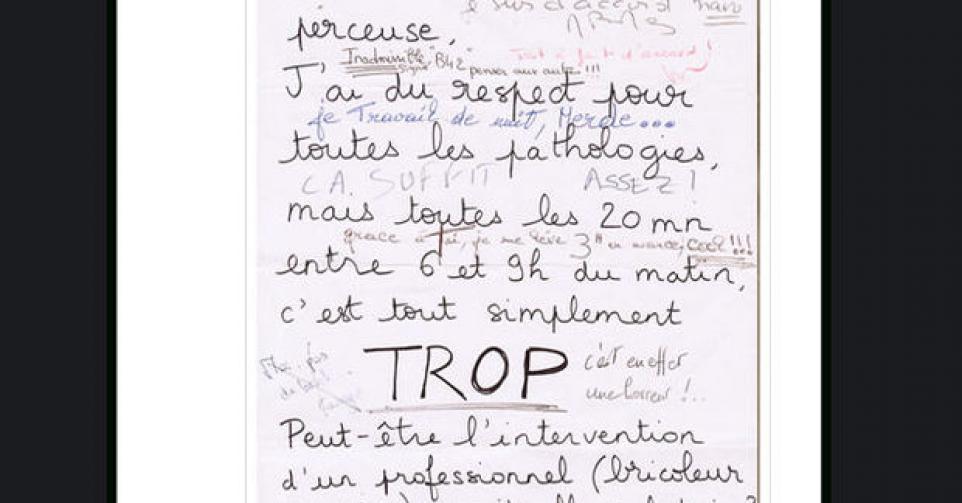 je suis d'accord
perceuse,
Inadmissible "B42" penser aux autres !!! Tout à fait d'accord !
J'ai du respect pour
je Travail de nuit, Merde...
toutes les pathologies,
ÇA SUFFIT ASSEZ !
mais toutes les 20 mn
grace à toi, je me lève 3H en avance, cool !!!
entre 6 et 9h du matin,
c'est tout simplement
TROP
c'est en effet
une horreur !..
Peut-être l'intervention
d'un professionnel (bricoleur